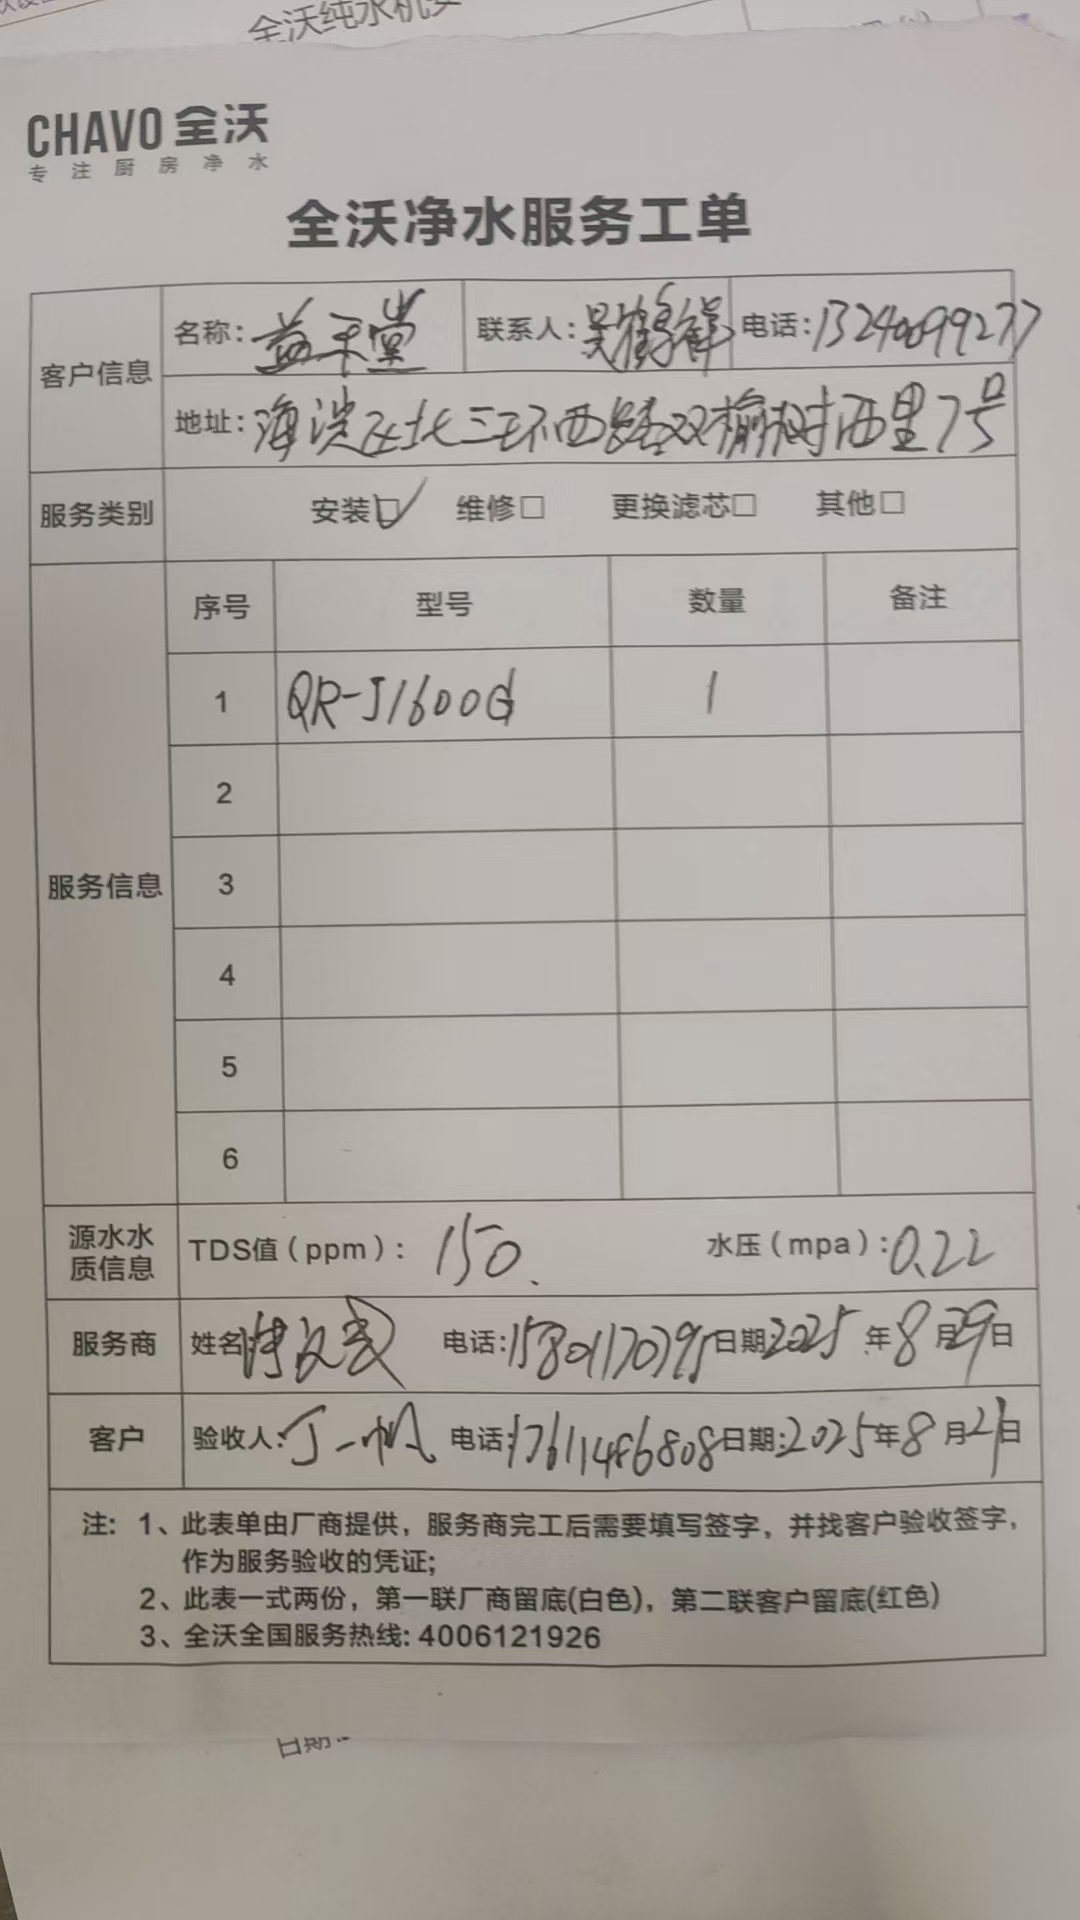 全沃纯水机安
CHAVO 全沃
专注厨房净水
全沃净水服务工单
客户信息
名称：益禾堂 联系人：吴鹤群 电话：13240099277
地址：海淀区北三环西路双榆树西里7号
服务类别 安装☑ 维修□ 更换滤芯□ 其他□
序号 型号 数量 备注
1 QR-J1600G 1
2
服务信息
3
4
5
6
源水水质信息 TDS值（ppm）：150. 水压（mpa）：0.22
服务商 姓名 电话：15801170795 日期：2025年8月29日
客户 验收人：丁一帆 电话：17611486808 日期：2025年8月29日
注：1、此表单由厂商提供，服务商完工后需要填写签字，并找客户验收签字，
作为服务验收的凭证；
2、此表一式两份，第一联厂商留底(白色)，第二联客户留底(红色)
3、全沃全国服务热线: 4006121926
日期：